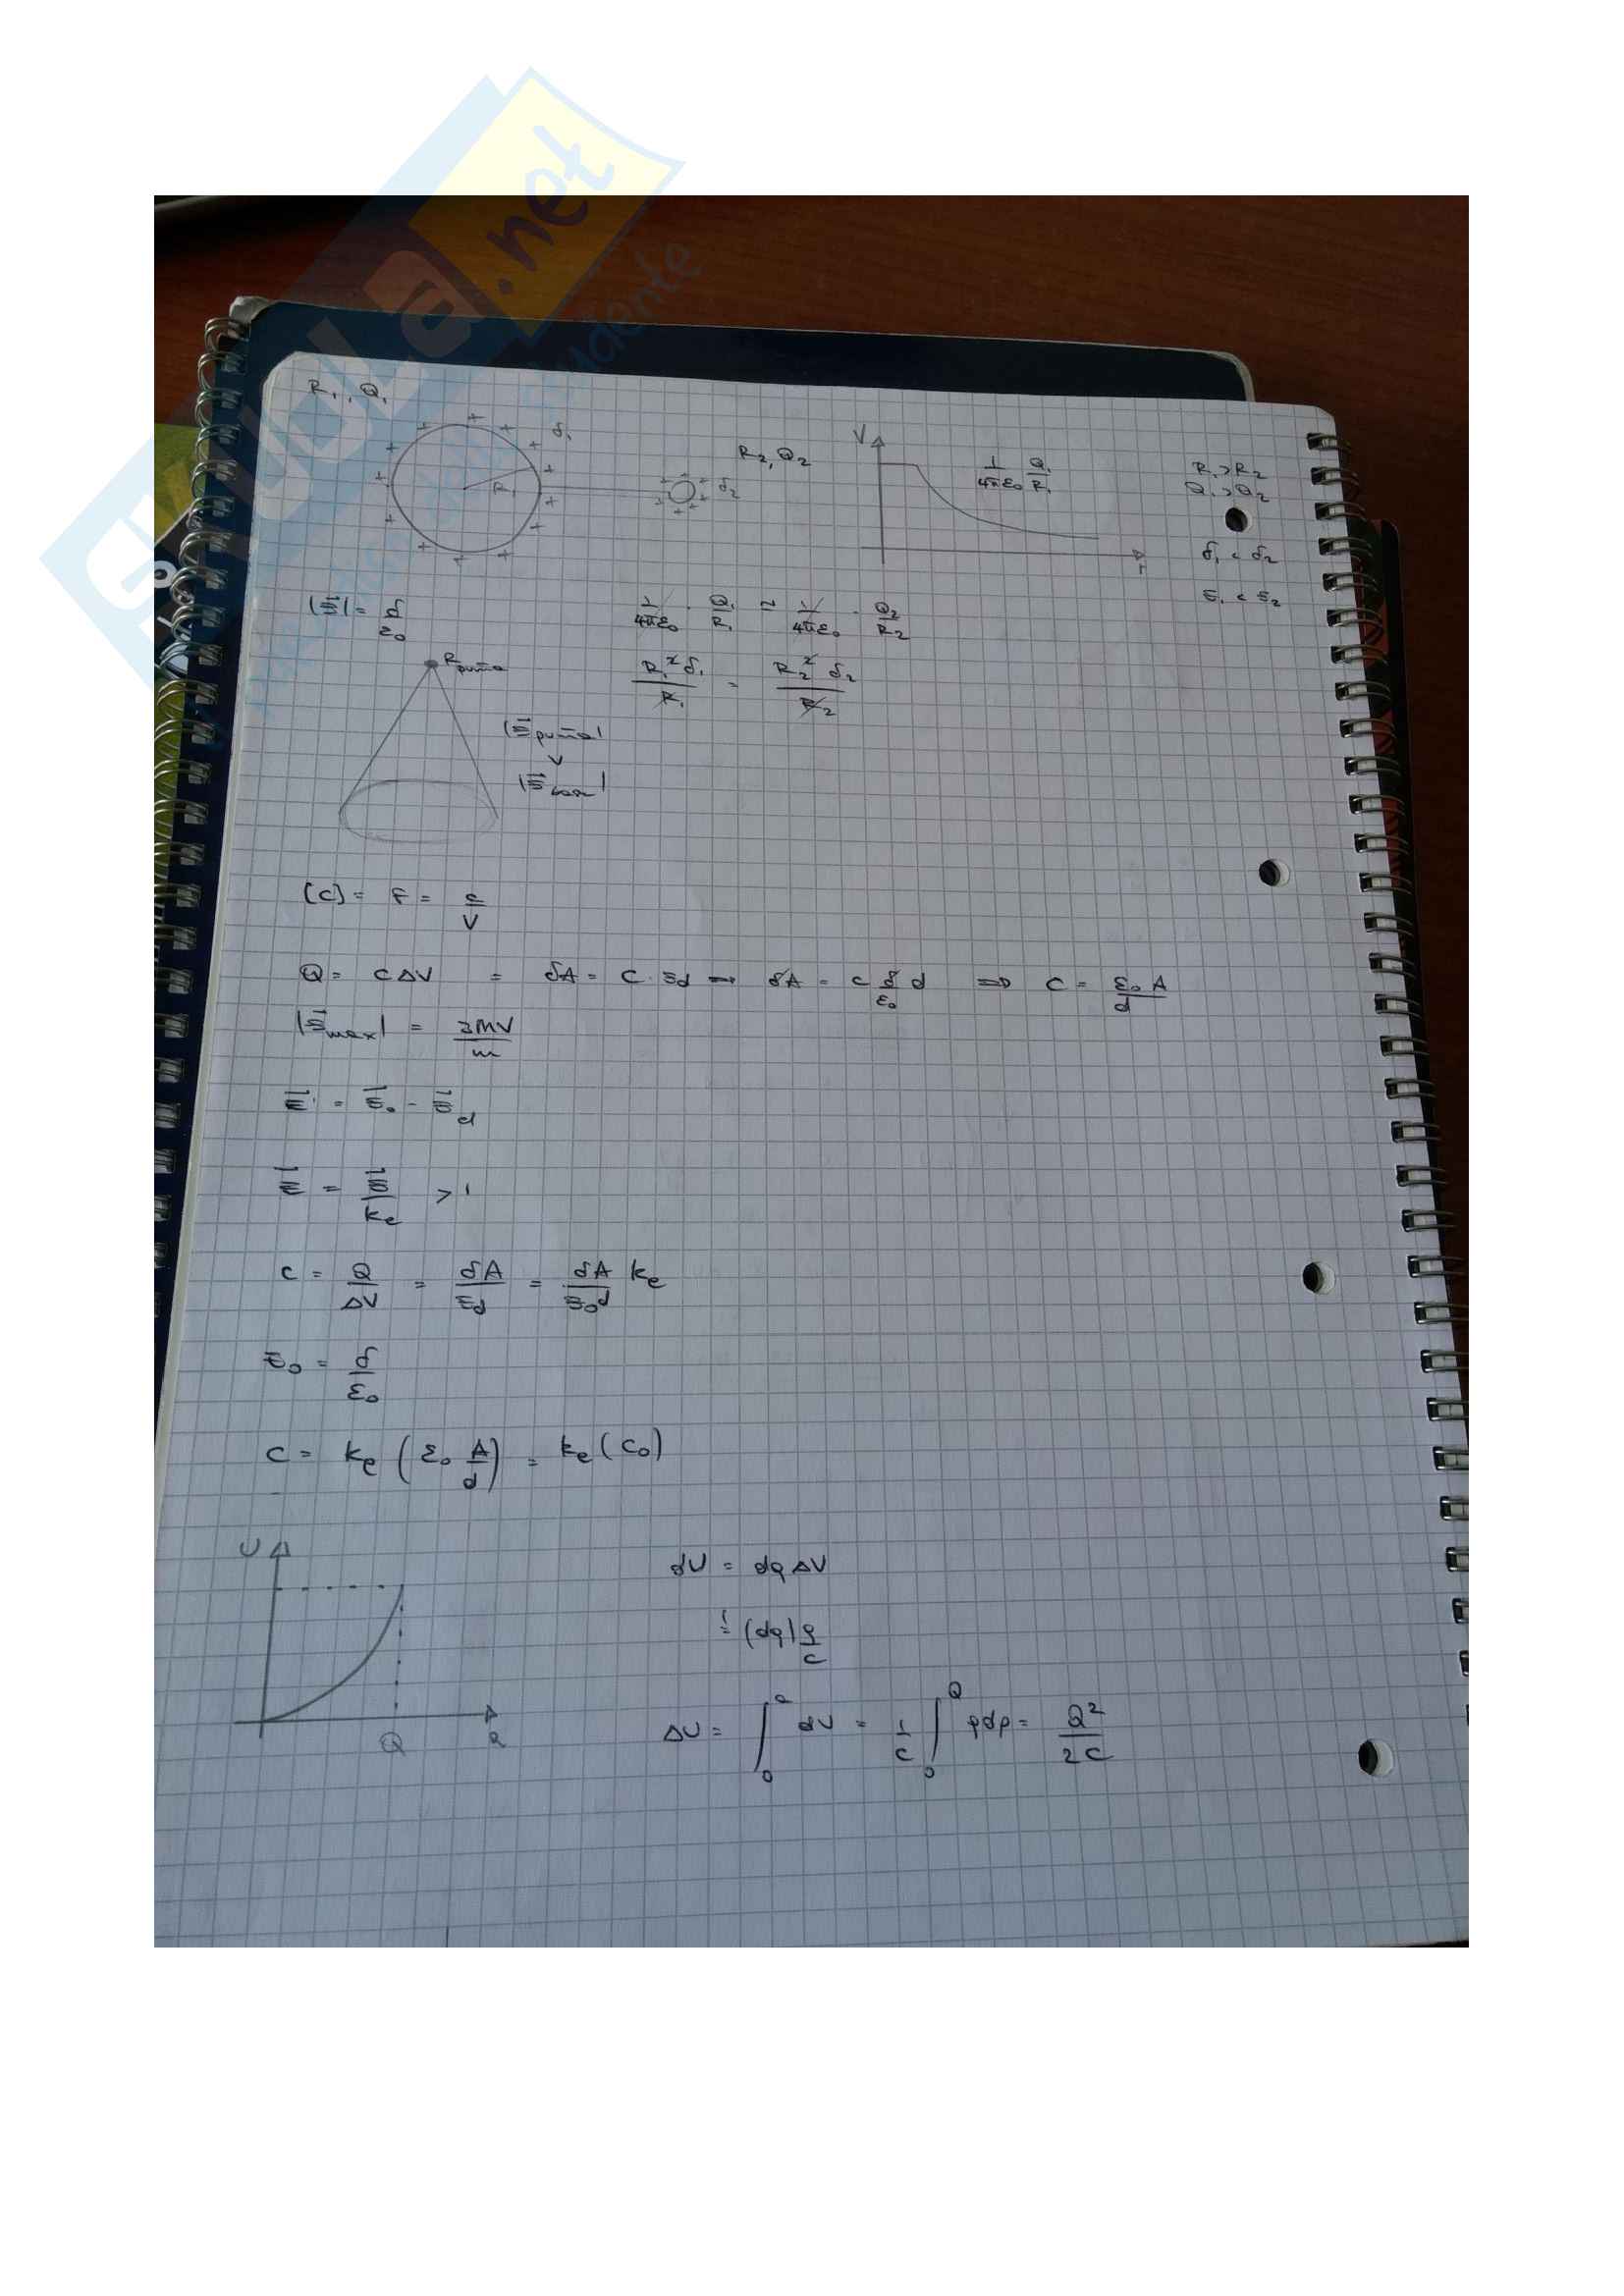 SKUOLA.net
R₁, Q₁
δ₁
R₁
δ₂
R₂, Q₂
V
1/4πε₀ Q₁/R₁
r
R₁ > R₂
Q₁ > Q₂
δ₁ < δ₂
E₁ < E₂
|E̅| = δ/ε₀
1/4πε₀ · Q₁/R₁ = 1/4πε₀ · Q₂/R₂
R₁² δ₁/R₁ = R₂² δ₂/R₂
R punta
|E̅ punta|
v
|E̅ base|
[C] = F = C/V
Q = C ΔV = δA = C · Ed → δA = C δ/ε₀ d ⇒ C = ε₀ A/d
|E̅max| = 3MV/m
E̅ = E̅₀ - E̅d
E̅ = E̅/ke > 1
C = Q/ΔV = δA/Ed = δA/E₀d ke
E₀ = δ/ε₀
C = ke (ε₀ A/d) = ke (C₀)
U
Q
R
dU = dq ΔV
= (dq) q/C
ΔU = ∫₀Q dU = 1/C ∫₀Q q dq = Q²/2C